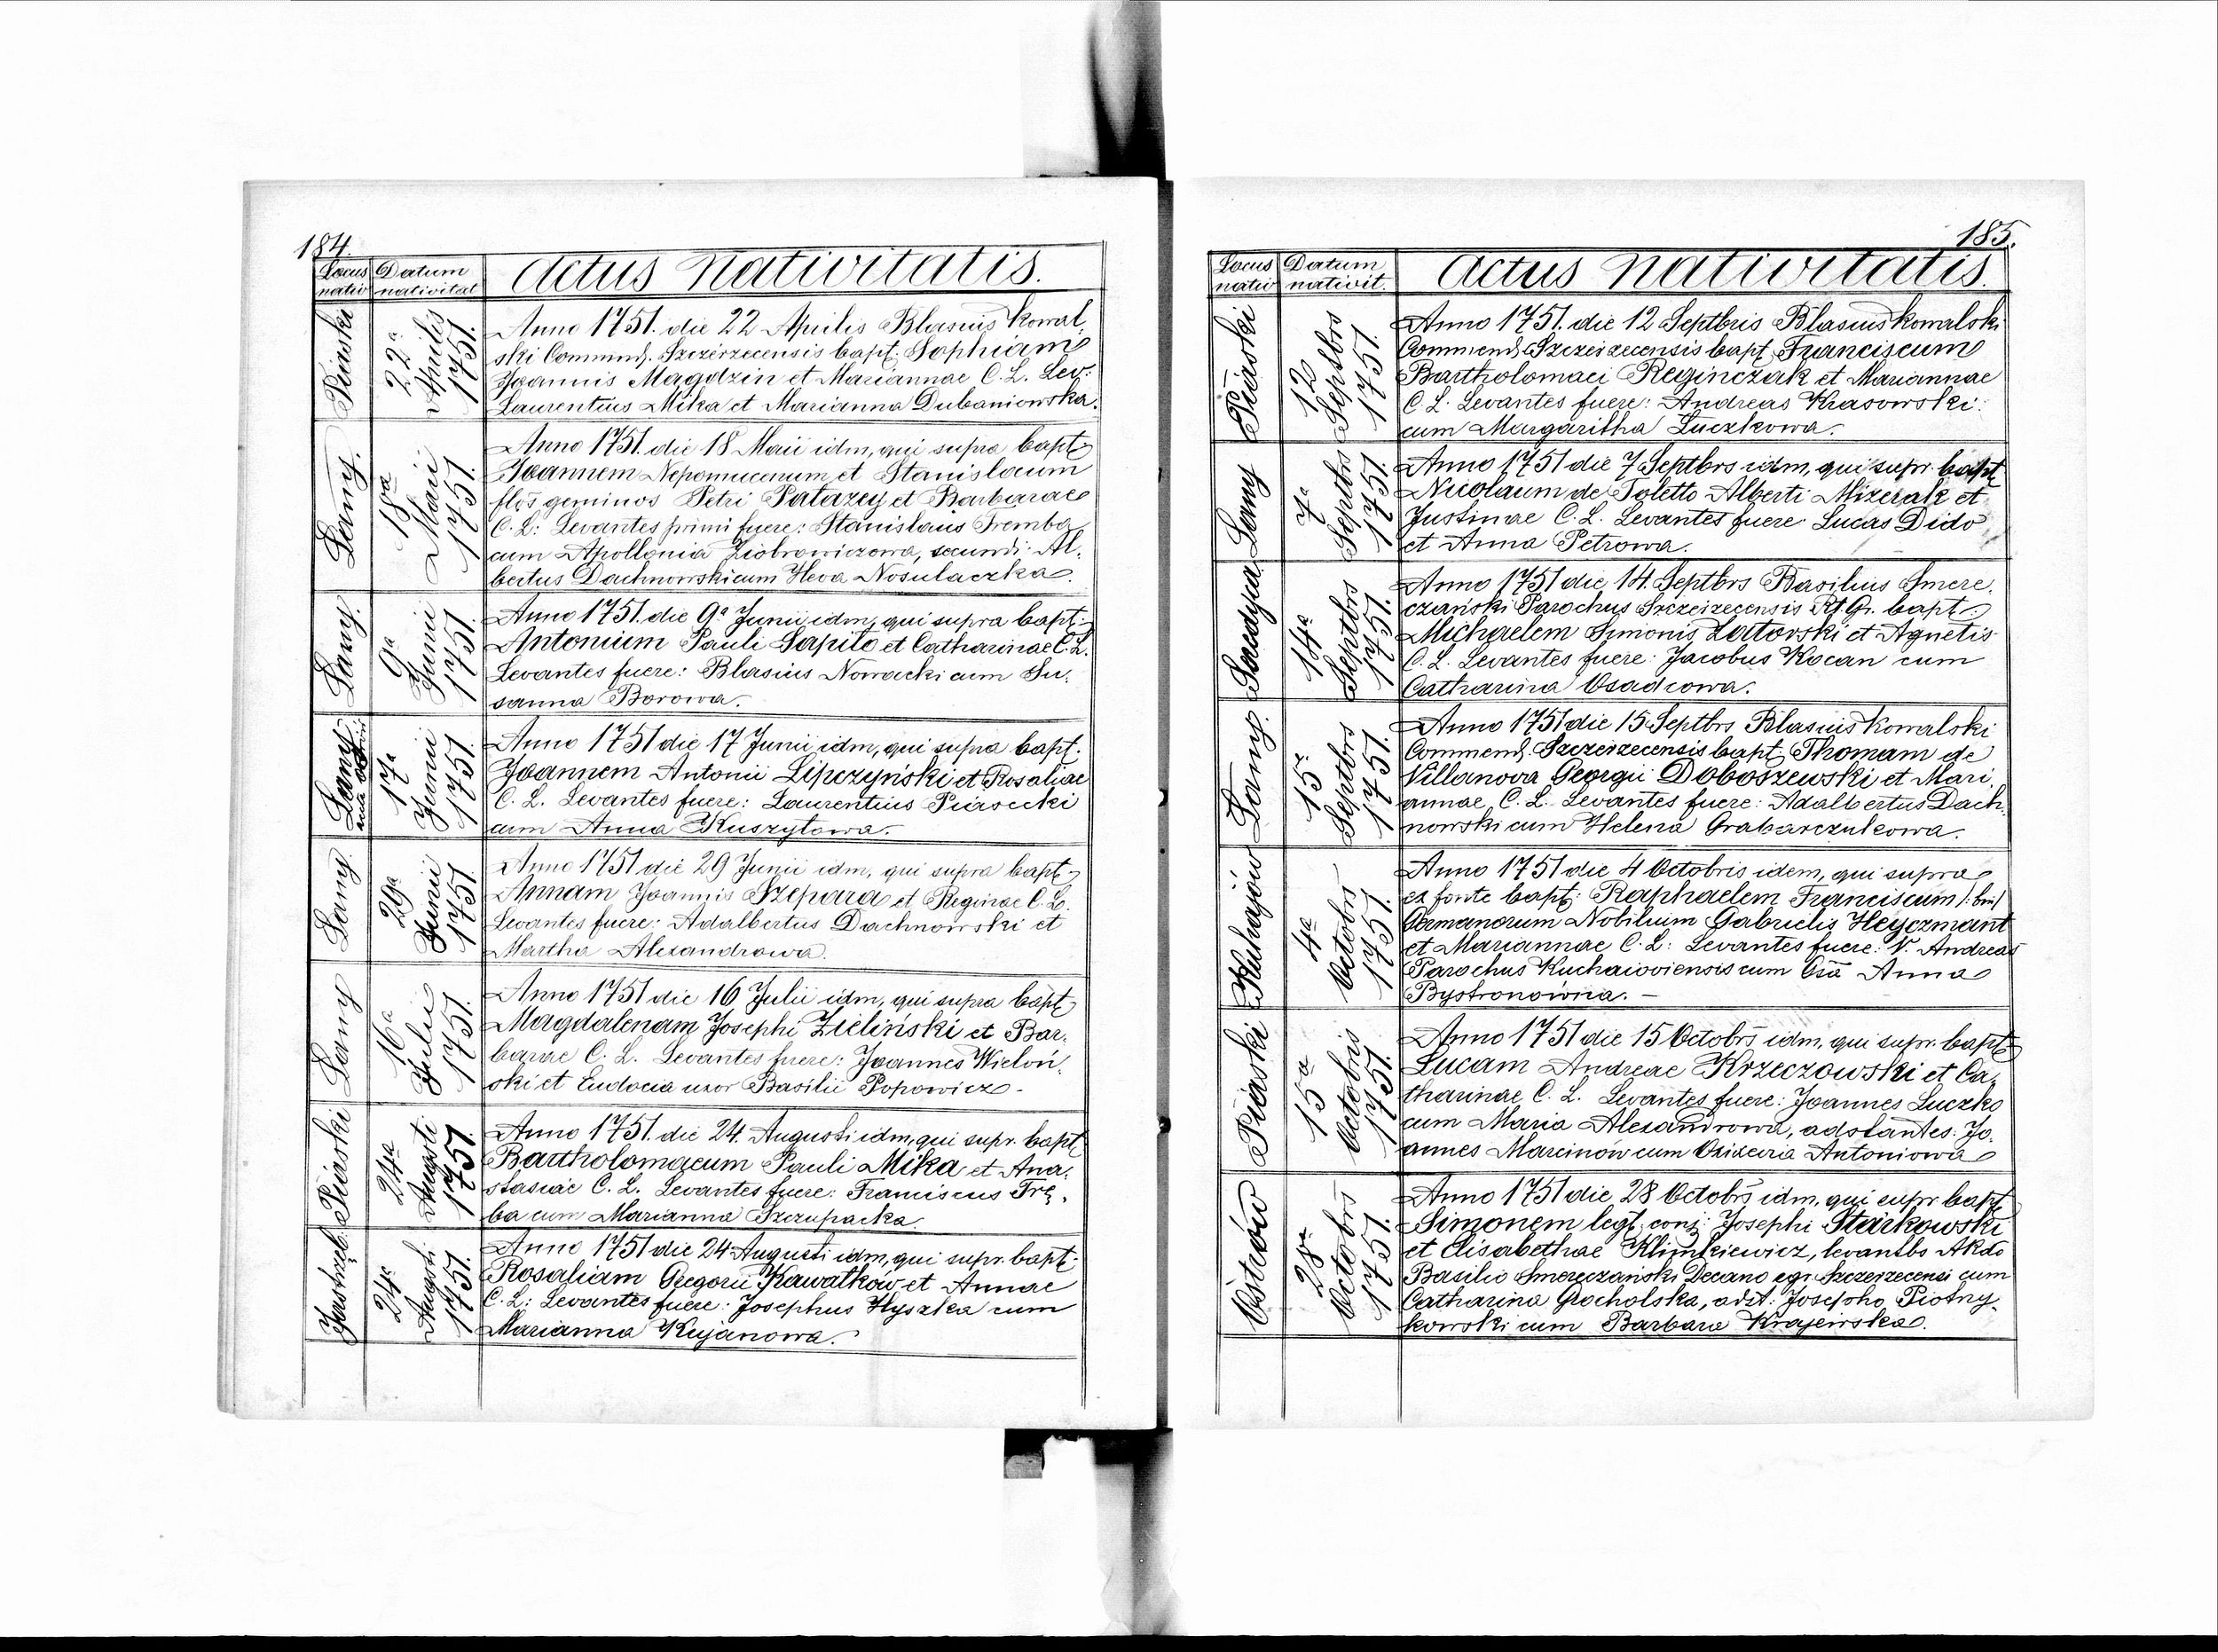 184.
Locus nativ
Datum nativitat
Actus Nativitatis.
Piaski
22a Aprilis 1751.
Anno 1751. die 22 Aprilis Blasius Kowal-
ski Commend. Szczerzecensis bapt: Sophiam
Joannis Magdzin et Mariannae C. L. Lev:
Laurentius Mika et Marianna Dubaniowska.
Łany.
18va Maii 1751.
Anno 1751. die 18 Maii idm, qui supra bapt:
Joannem Nepomucenum et Stanislaum
flos geminos Petri Patazey et Barbarae
C. L: Levantes primi fuere: Stanislaus Tremba
cum Apollonia Ziobrowiczowa, secundi: Al-
bertus Dachnowski cum Heva Nosulaczka.
Łany.
9a Junii 1751.
Anno 1751. die 9a Junii idm, qui supra bapt:
Antonium Pauli Sapito et Catharinae C. L.
Levantes fuere: Blasius Nowacki cum Su-
sanna Borowa.
Łany
17a Junii 1751.
Anno 1751 die 17 Junii idm, qui supra bapt.
Joannem Antonii Lipczyński et Rosaliae
C. L. Levantes fuere: Laurentius Piasecki
cum Anna Kuszytowa.
Łany.
29a Junii 1751.
Anno 1751 die 29 Junii idm, qui supra bapt:
Annam Joannis Szepara et Reginae C. L.
Levantes fuere: Adalbertus Dachnowski et
Martha Alexandrowa.
Łany
16a Julii 1751.
Anno 1751 die 16 Julii idm, qui supra bapt:
Magdalenam Josephi Zieliński et Bar-
barae C. L. Levantes fuere: Joannes Wieloń-
ski et Eudocia uxor Basilii Popowicz.
Piaski
24a Augusti 1751.
Anno 1751. die 24. Augusti idm, qui supr. bapt:
Bartholomaeum Pauli Mika et Ana-
stasiae C. L. Levantes fuere: Franciscus Trę-
ba cum Marianna Szczupacka.
Jastrzęb.
24a Augusti 1751.
Anno 1751 die 24 Augusti idm, qui supr. bapt:
Rosaliam Gregorii Kawatków et Annae
C. L: Levantes fuere: Josephus Hyszka cum
Marianna Kujanowa.
185.
Locus nativ
Datum nativit.
Actus Nativitatis.
Piaski
12 Septbrs 1751.
Anno 1751. die 12 Septbris Blasius Kowalski
Commend. Szczerzecensis bapt. Franciscum
Bartholomaei Reginczak et Mariannae
C L. Levantes fuere: Andreas Krasowski
cum Margaritha Łuczkowa.
Łany
7a Septbrs 1751.
Anno 1751 die 7 Septbrs idm, qui supr. bapt
Nicolaum de Toletto Alberti Mizerak et
Justinae C. L. Levantes fuere: Lucas Dido
et Anna Petrowa.
14a Septbrs 1751.
Anno 1751 die 14. Septbrs Basilius Smere-
czański Parochus Szczerzecensis Rt. Gr. bapt:
Michaelem Simonis Zatorski et Agnetis
C. L. Levantes fuere: Jacobus Kocan cum
Catharina Osadcowa.
Łany.
15a Septbrs 1751.
Anno 1751 die 15 Septbrs Blasius Kowalski
Commend. Szczerzecensis bapt: Thomam de
Villanova Georgii Doboszewski et Mari-
annae C. L. Levantes fuere: Adalbertus Dach-
nowski cum Helena Grabarczukowa.
Kuhajów
4a Octobrs 1751.
Anno 1751 die 4 Octobris idem, qui supra
ex fonte bapt: Raphaelem Franciscum /:bn:/
Germanorum Nobilium Gabrielis Heyczmant
et Mariannae C. L: Levantes fuere: V. Andreas
Parochus Kuchaioviensis cum Gsā Anna
Bystronowna. –
Piaski
15a Octobris 1751.
Anno 1751 die 15 Octobrs idm. qui supr. bapt:
Lucam Andreae Krzeczowski et Ca-
tharinae C. L. Levantes fuere: Joannes Luczko
cum Maria Alexandrowa, adstantes: Jo-
annes Marcinów cum Antoniowa
Ostrów
28a Octobrs 1751.
Anno 1751 die 28 Octobrs idm, qui supr bapt
Simonem legt: conj: Josephi Starkowski
et Elisabethae Klimkiewicz, levantbs Akdo
Basilio Smereczański Decano egr. Szczerzecensi cum
Catharina Grocholska, adst: Josepho Piotny-
kowski cum Barbara Krajewska.